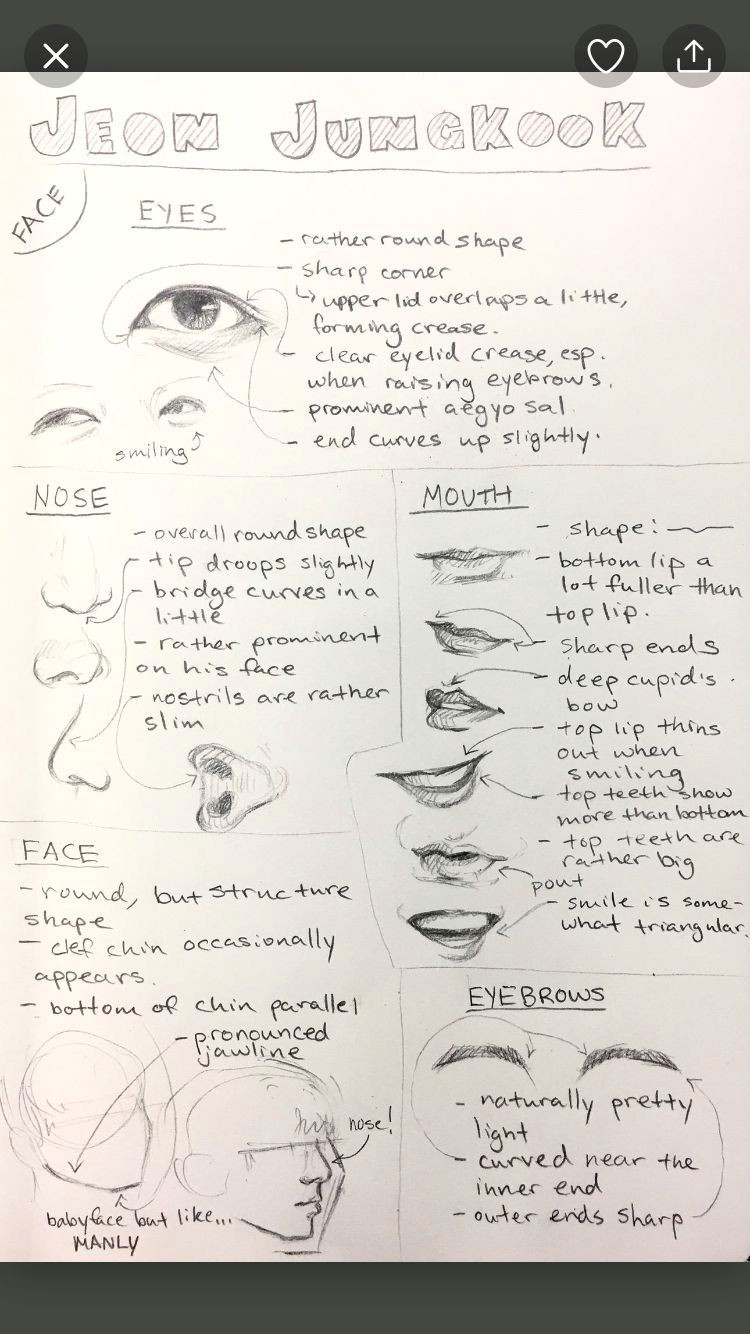 JEON JUNGKOOK
FACE
EYES
- rather round shape
- sharp corner
↳ upper lid overlaps a little,
forming crease.
- clear eyelid crease, esp.
when raising eyebrows.
- prominent aegyo sal.
- end curves up slightly.
smiling
NOSE
- overall round shape
- tip droops slightly
- bridge curves in a
little
- rather prominent
on his face
- nostrils are rather
slim
MOUTH
- shape:
- bottom lip a
lot fuller than
top lip.
- sharp ends
- deep cupid's
bow
- top lip thins
out when
smiling
- top teeth show
more than bottom
- top teeth are
rather big
pout
- smile is some-
what triangular.
FACE
- round, but structure
shape
- clef chin occasionally
appears.
- bottom of chin parallel
- pronounced
jawline
nose!
babyface but like...
MANLY
EYEBROWS
- naturally pretty
light
- curved near the
inner end
- outer ends sharp